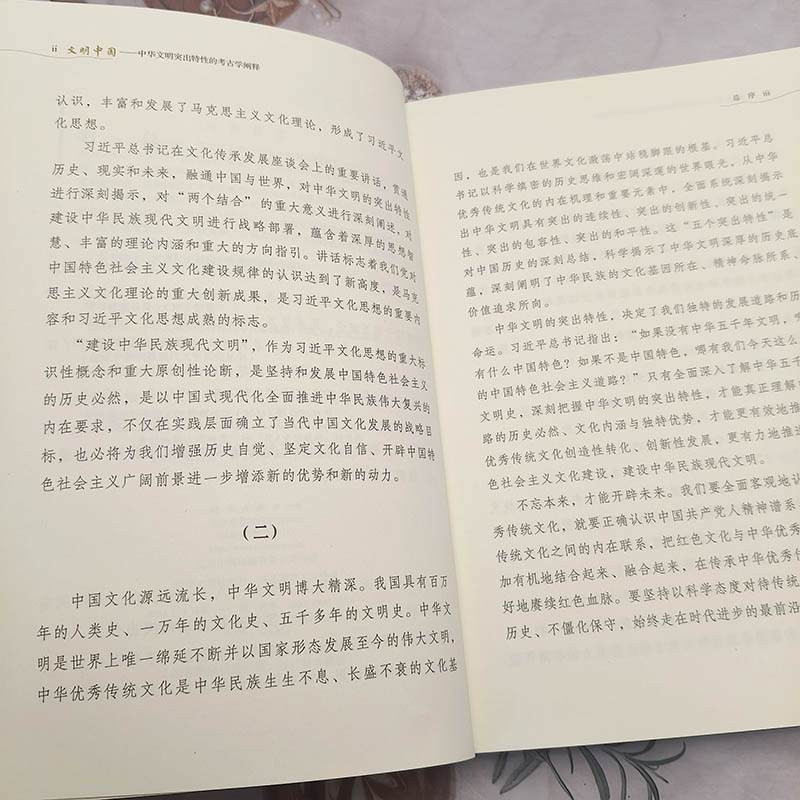 ii 文明中国——中华文明突出特性的考古学阐释
认识，丰富和发展了马克思主义文化理论，形成了习近平文
化思想。
习近平总书记在文化传承发展座谈会上的重要讲话，贯通
历史、现实和未来，融通中国与世界，对中华文明的突出特性
进行深刻揭示，对“两个结合”的重大意义进行深刻阐述，对
建设中华民族现代文明进行战略部署，蕴含着深厚的思想智
慧、丰富的理论内涵和重大的方向指引。讲话标志着我们党对
中国特色社会主义文化建设规律的认识达到了新高度，是马克
思主义文化理论的重大创新成果，是习近平文化思想的重要内
容和习近平文化思想成熟的标志。
“建设中华民族现代文明”，作为习近平文化思想的重大标
识性概念和重大原创性论断，是坚持和发展中国特色社会主义
的历史必然，是以中国式现代化全面推进中华民族伟大复兴的
内在要求，不仅在实践层面确立了当代中国文化发展的战略目
标，也必将为我们增强历史自觉、坚定文化自信、开辟中国特
色社会主义广阔前景进一步增添新的优势和新的动力。
（二）
中国文化源远流长，中华文明博大精深。我国具有百万
年的人类史、一万年的文化史、五千多年的文明史。中华文
明是世界上唯一绵延不断并以国家形态发展至今的伟大文明，
中华优秀传统文化是中华民族生生不息、长盛不衰的文化基
总 序 iii
因，也是我们在世界文化激荡中站稳脚跟的根基。习近平总
书记以科学缜密的历史思维和宏阔深邃的世界眼光，从中华
优秀传统文化的内在机理和重要元素中，全面系统深刻揭示
出中华文明具有突出的连续性、突出的创新性、突出的统一
性、突出的包容性、突出的和平性。这“五个突出特性”是
对中国历史的深刻总结，科学揭示了中华文明深厚的历史底
蕴，深刻阐明了中华民族的文化基因所在、精神命脉所系、
价值追求所向。
中华文明的突出特性，决定了我们独特的发展道路和历
命运。习近平总书记指出：“如果没有中华五千年文明，哪
有什么中国特色？如果不是中国特色，哪有我们今天这么
的中国特色社会主义道路？”只有全面深入了解中华五千
文明史，深刻把握中华文明的突出特性，才能真正理解
路的历史必然、文化内涵与独特优势，才能更有效地推
优秀传统文化创造性转化、创新性发展，更有力地推进
社会主义文化建设，建设中华民族现代文明。
不忘本来，才能开辟未来。我们要全面客观地认
秀传统文化，就要正确认识中国共产党人精神谱系
传统文化之间的内在联系，把红色文化与中华优秀
加有机地结合起来、融合起来，在传承中华优秀
好地赓续红色血脉。要坚持以科学态度对待传统
历史、不僵化保守，始终走在时代进步的最前沿